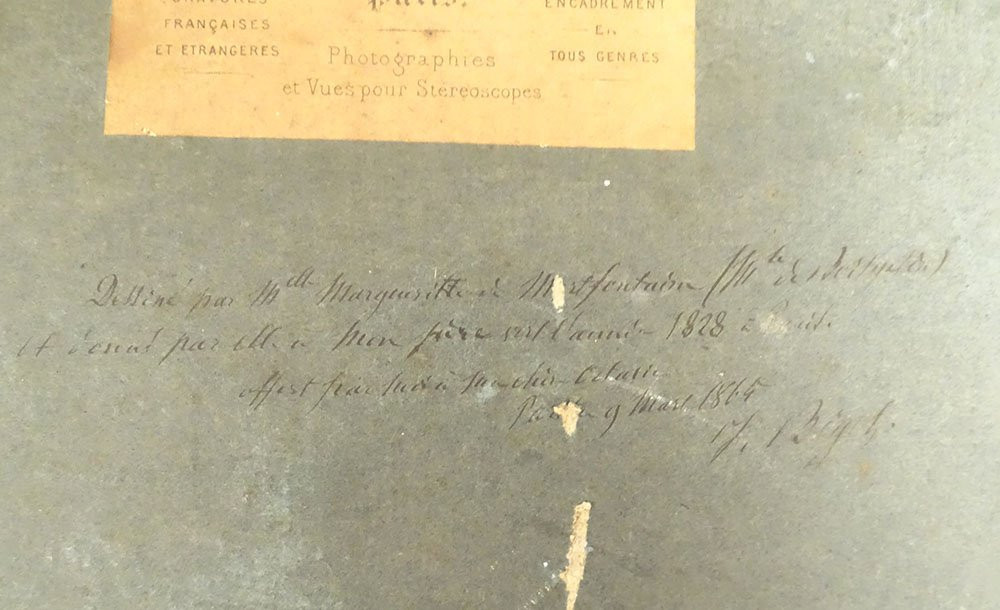 Paris.
FRANÇAISES
ET ETRANGERES
Photographies
et Vues pour Stéréoscopes
ENCADREMENT
EN
TOUS GENRES
Dessiné par Mlle Margueritte de Montfontaine (Mse de
et donné par elle à Mon père vers l'année 1828 à Paris.
offert par moi à Ma chère Octavie
Paris le 9 Mars 1865